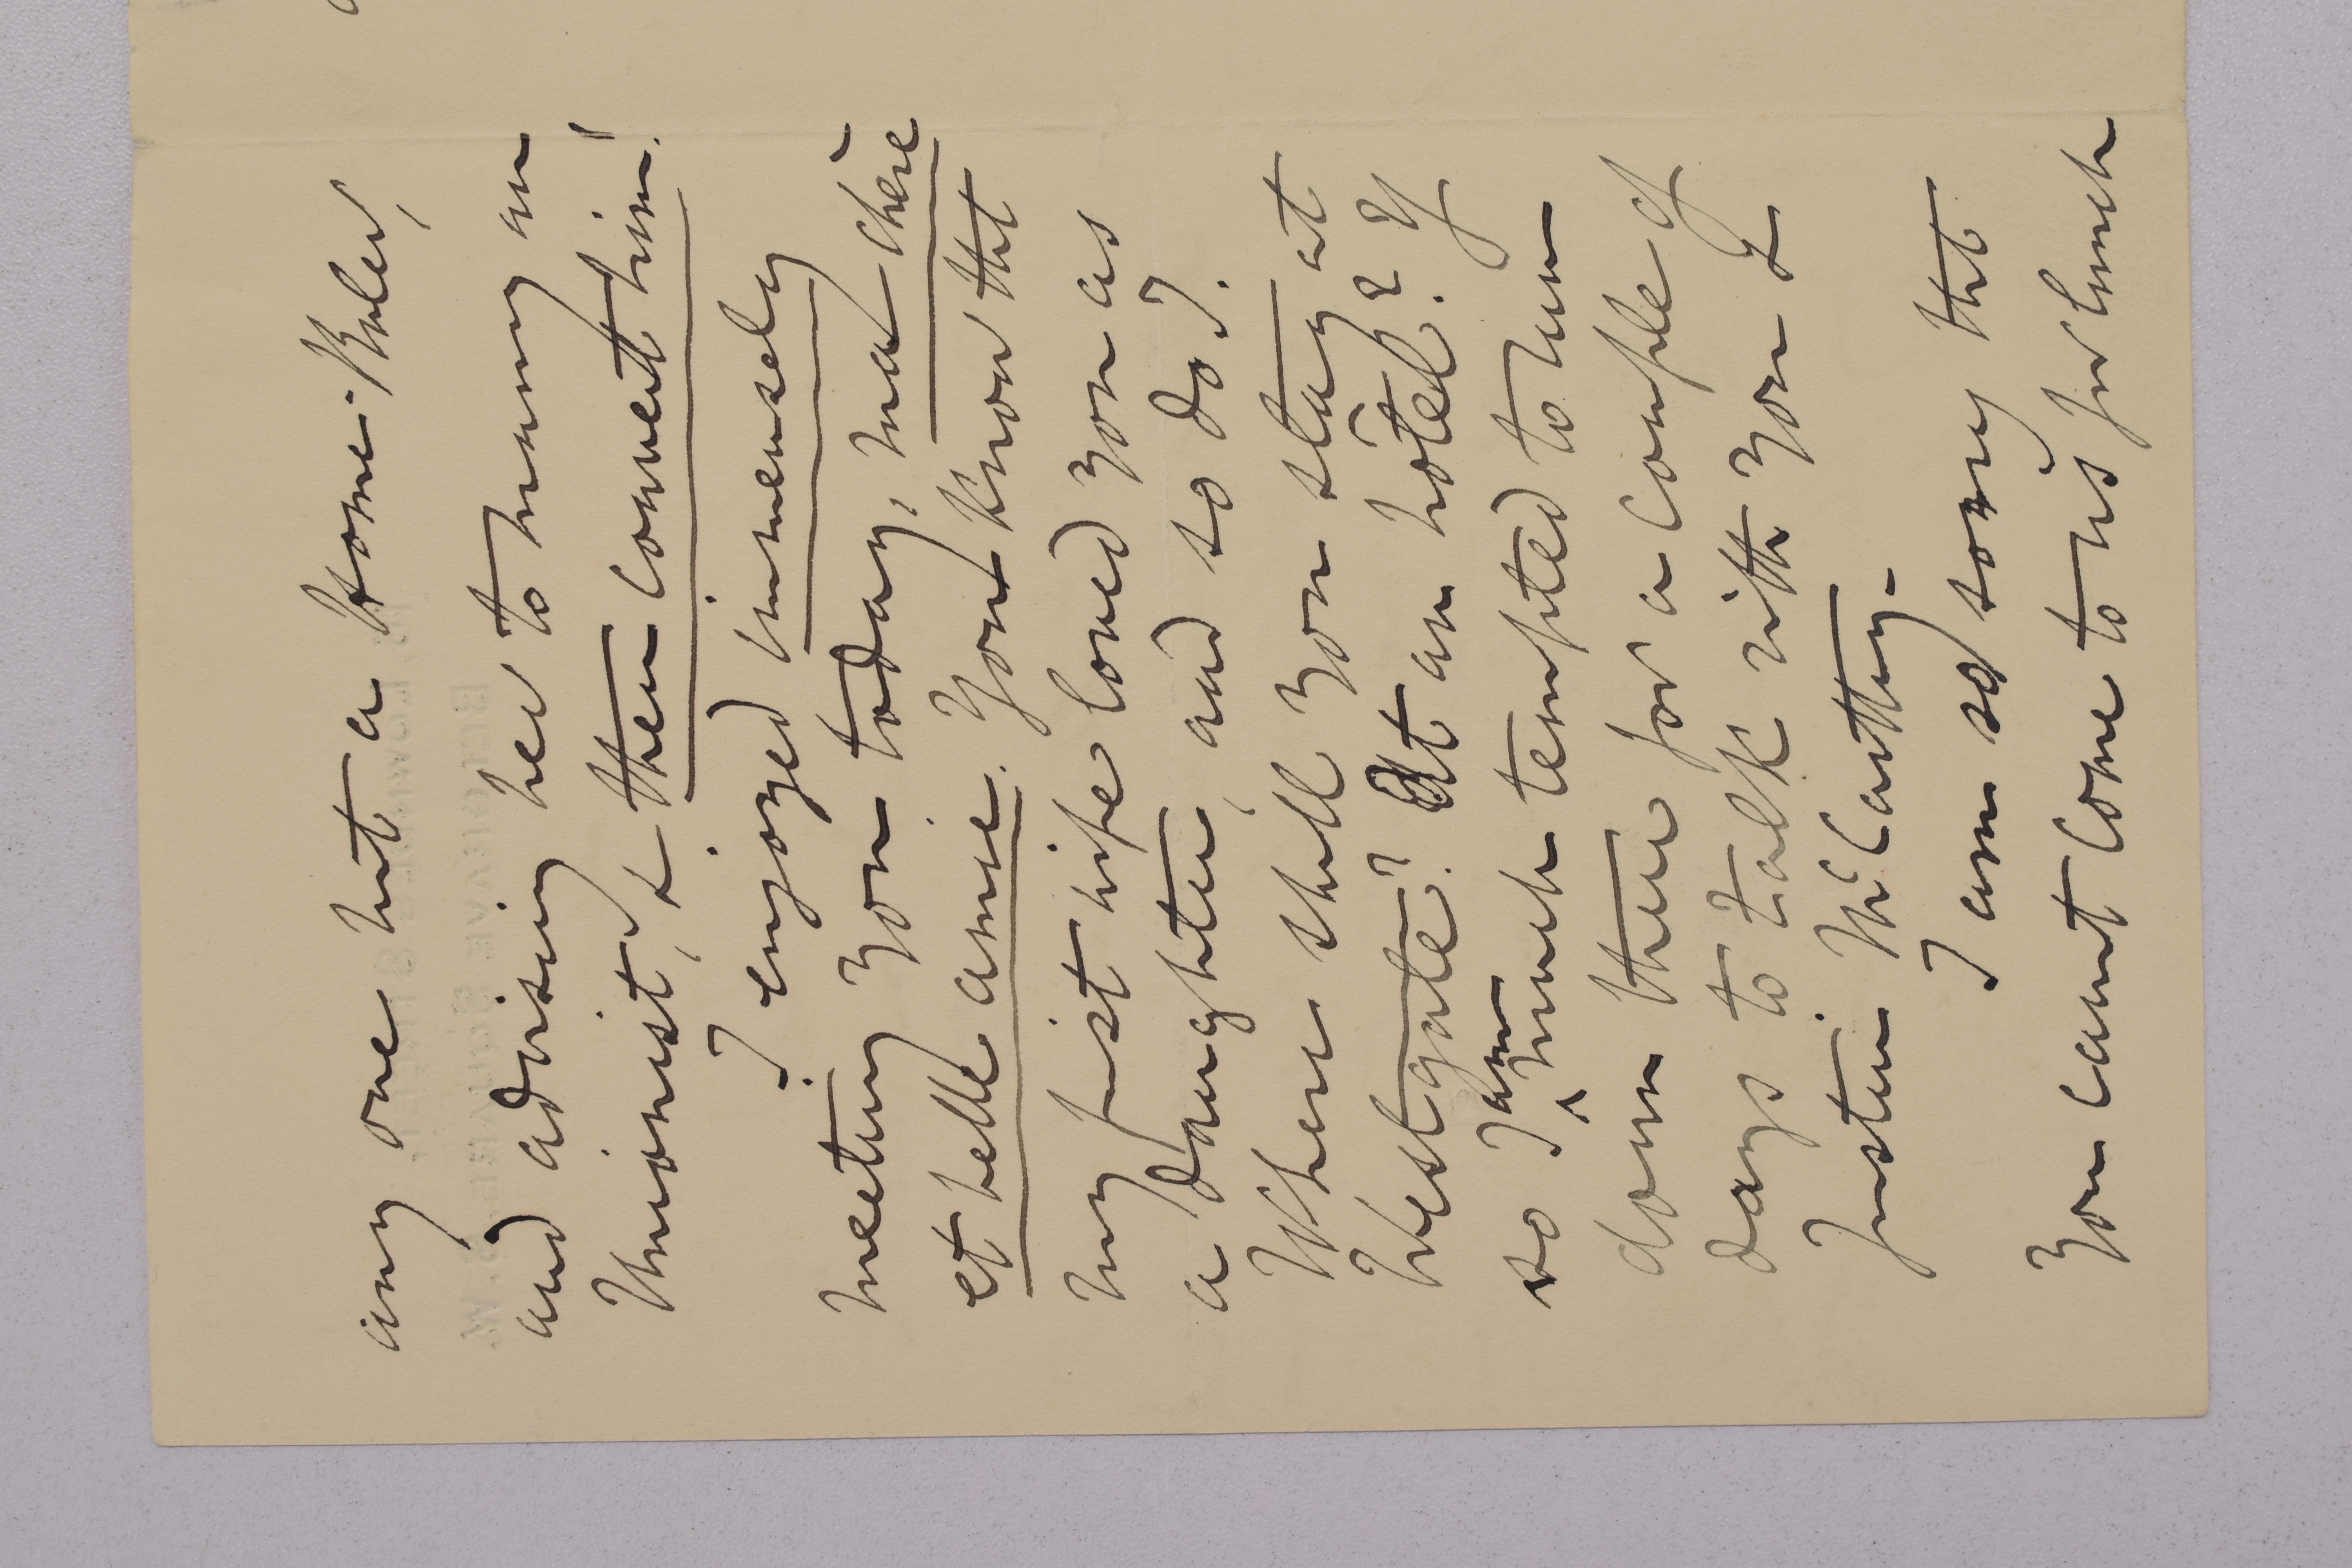 any one but a Home-Ruler,
and advising her to marry an
Unionist, & then convert him!
I enjoyed immensely
meeting you today, ma chère
et belle amie. You know that
my first wife loved you as
a daughter, and so do I.
Where shall you stay at
Westgate? At an hôtel?? If
so I am much tempted to run
down there for a couple of
days to talk with you &
Justin McCarthy.
I am so sorry that
you cannot come to us for lunch